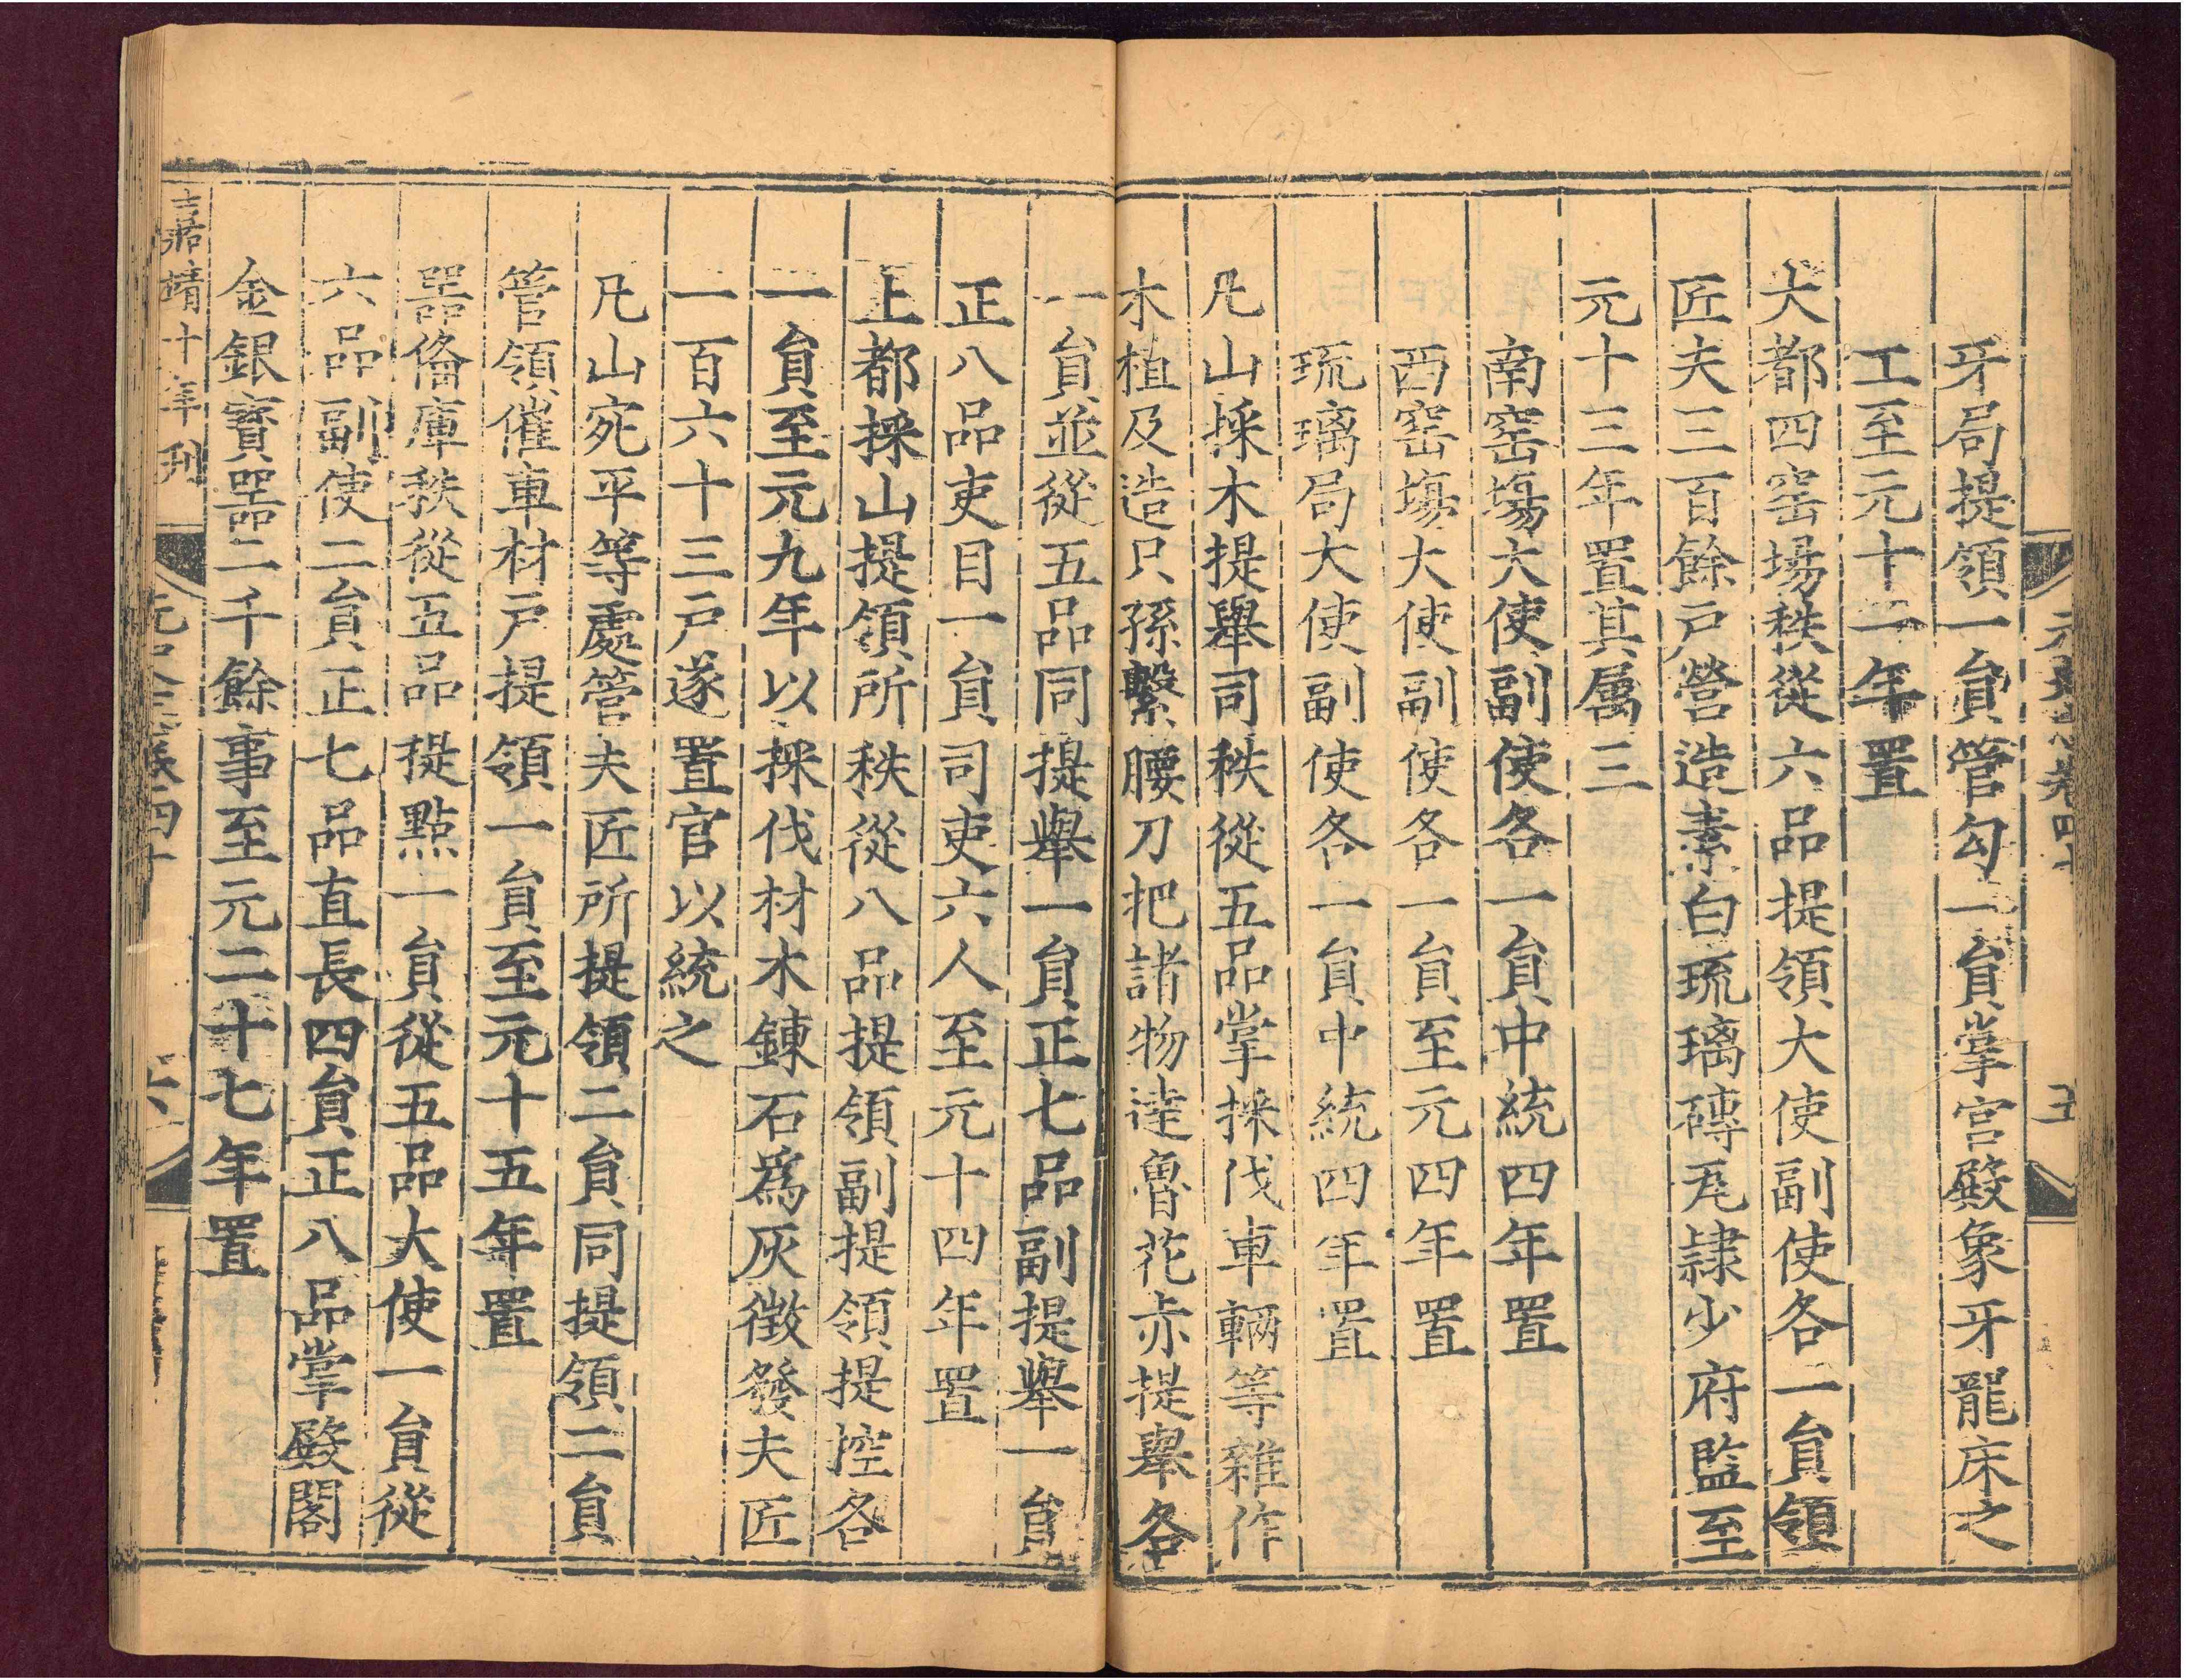 牙局提領一貟管勾一貟掌宮殿象牙龍床之
工至元十一年置
大都四窑場秩從六品提領大使副使各一貟領
匠夫三百餘戸營造素白琉璃磚瓦隷少府監至
元十三年置其属三
南窑塲大使副使各一貟中統四年置
西窑塲大使副使各一貟至元四年置
琉璃局大使副使各一貟中統四年置
凡山採木提舉司秩從五品掌採伐車輛等雜作
木植及造只孫繫腰刀把諸物逹魯花赤提舉各
一貟並從五品同提舉一貟正七品副提舉一貟
正八品吏目一貟司吏六人至元十四年置
上都採山提領所秩從八品提領副提領提控各
一貟至元九年以採伐材木鍊石爲灰徴發夫匠
一百六十三戸遂置官以統之
凡山宛平等處管夫匠所提領二貟同提領二貟
管領催車材戸提領一貟至元十五年置
噐俻庫秩從五品提點一貟從五品大使一貟從
六品副使二貟正七品直長四貟正八品掌殿閣
金銀寳噐二千餘事至元二十七年置
嘉靖十年刋